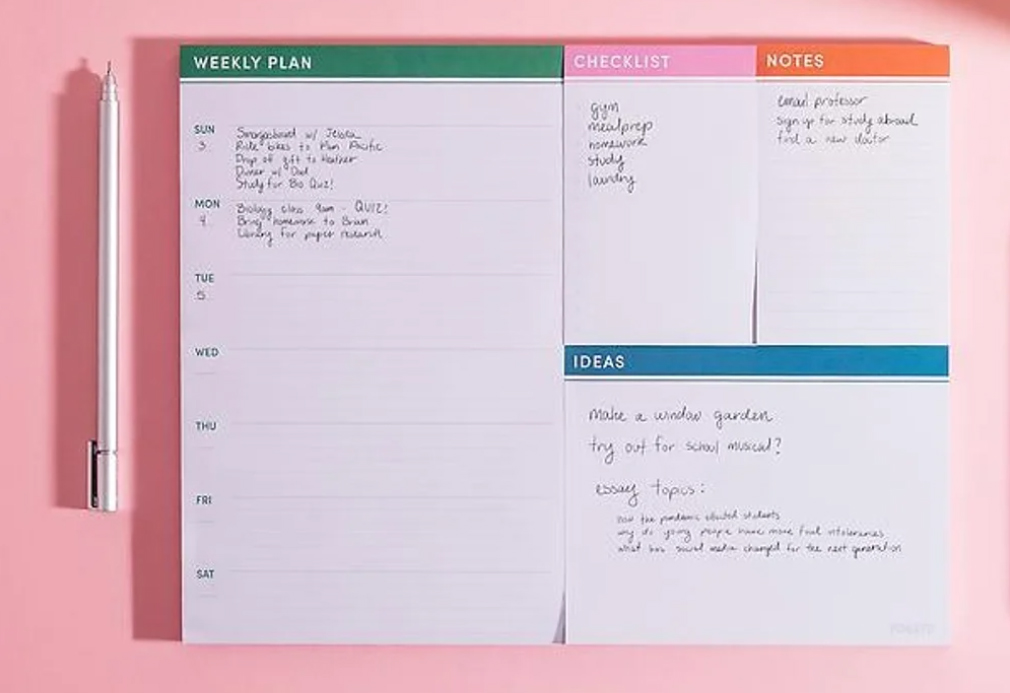 WEEKLY PLAN
SUN
3
Smorgasbord w/
Ride bikes to Pacific
Drop of gift to Heather
Dinner w/ Dad
Study for Bio Quiz!
MON
4
Biology class 9am - QUIZ!
Bring homework to Brian
Library for paper research
TUE
5
WED
THU
FRI
SAT
CHECKLIST
gym
mealprep
homework
study
laundry
NOTES
email professor
sign up for study abroad
find a new doctor
IDEAS
make a window garden
try out for school musical?
essay topics:
how the pandemic affected students
why do young people have more food intolerances
what has social media changed for the next generation